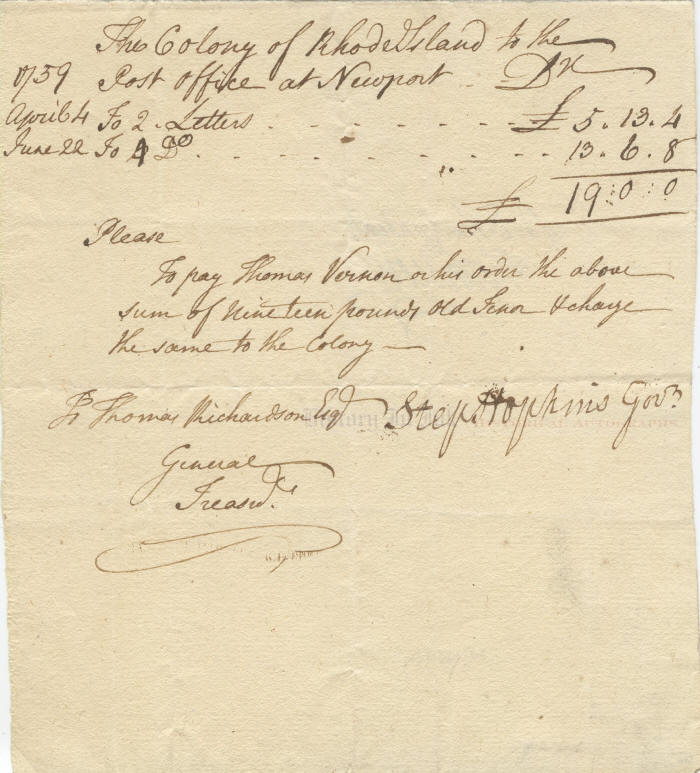 The Colony of Rhode Island to the
1759 Post Office at Newport Dr
April 4 To 2 Letters £ 5.13.4
June 22 To 4 Do 13.6.8
£ 19:0:0
Please
To pay Thomas Vernon or his order the above
sum of Nineteen pounds Old Tenor & charge
the same to the Colony
To Thomas Richardson Esqr Step Hopkins Govr
General
Treasr